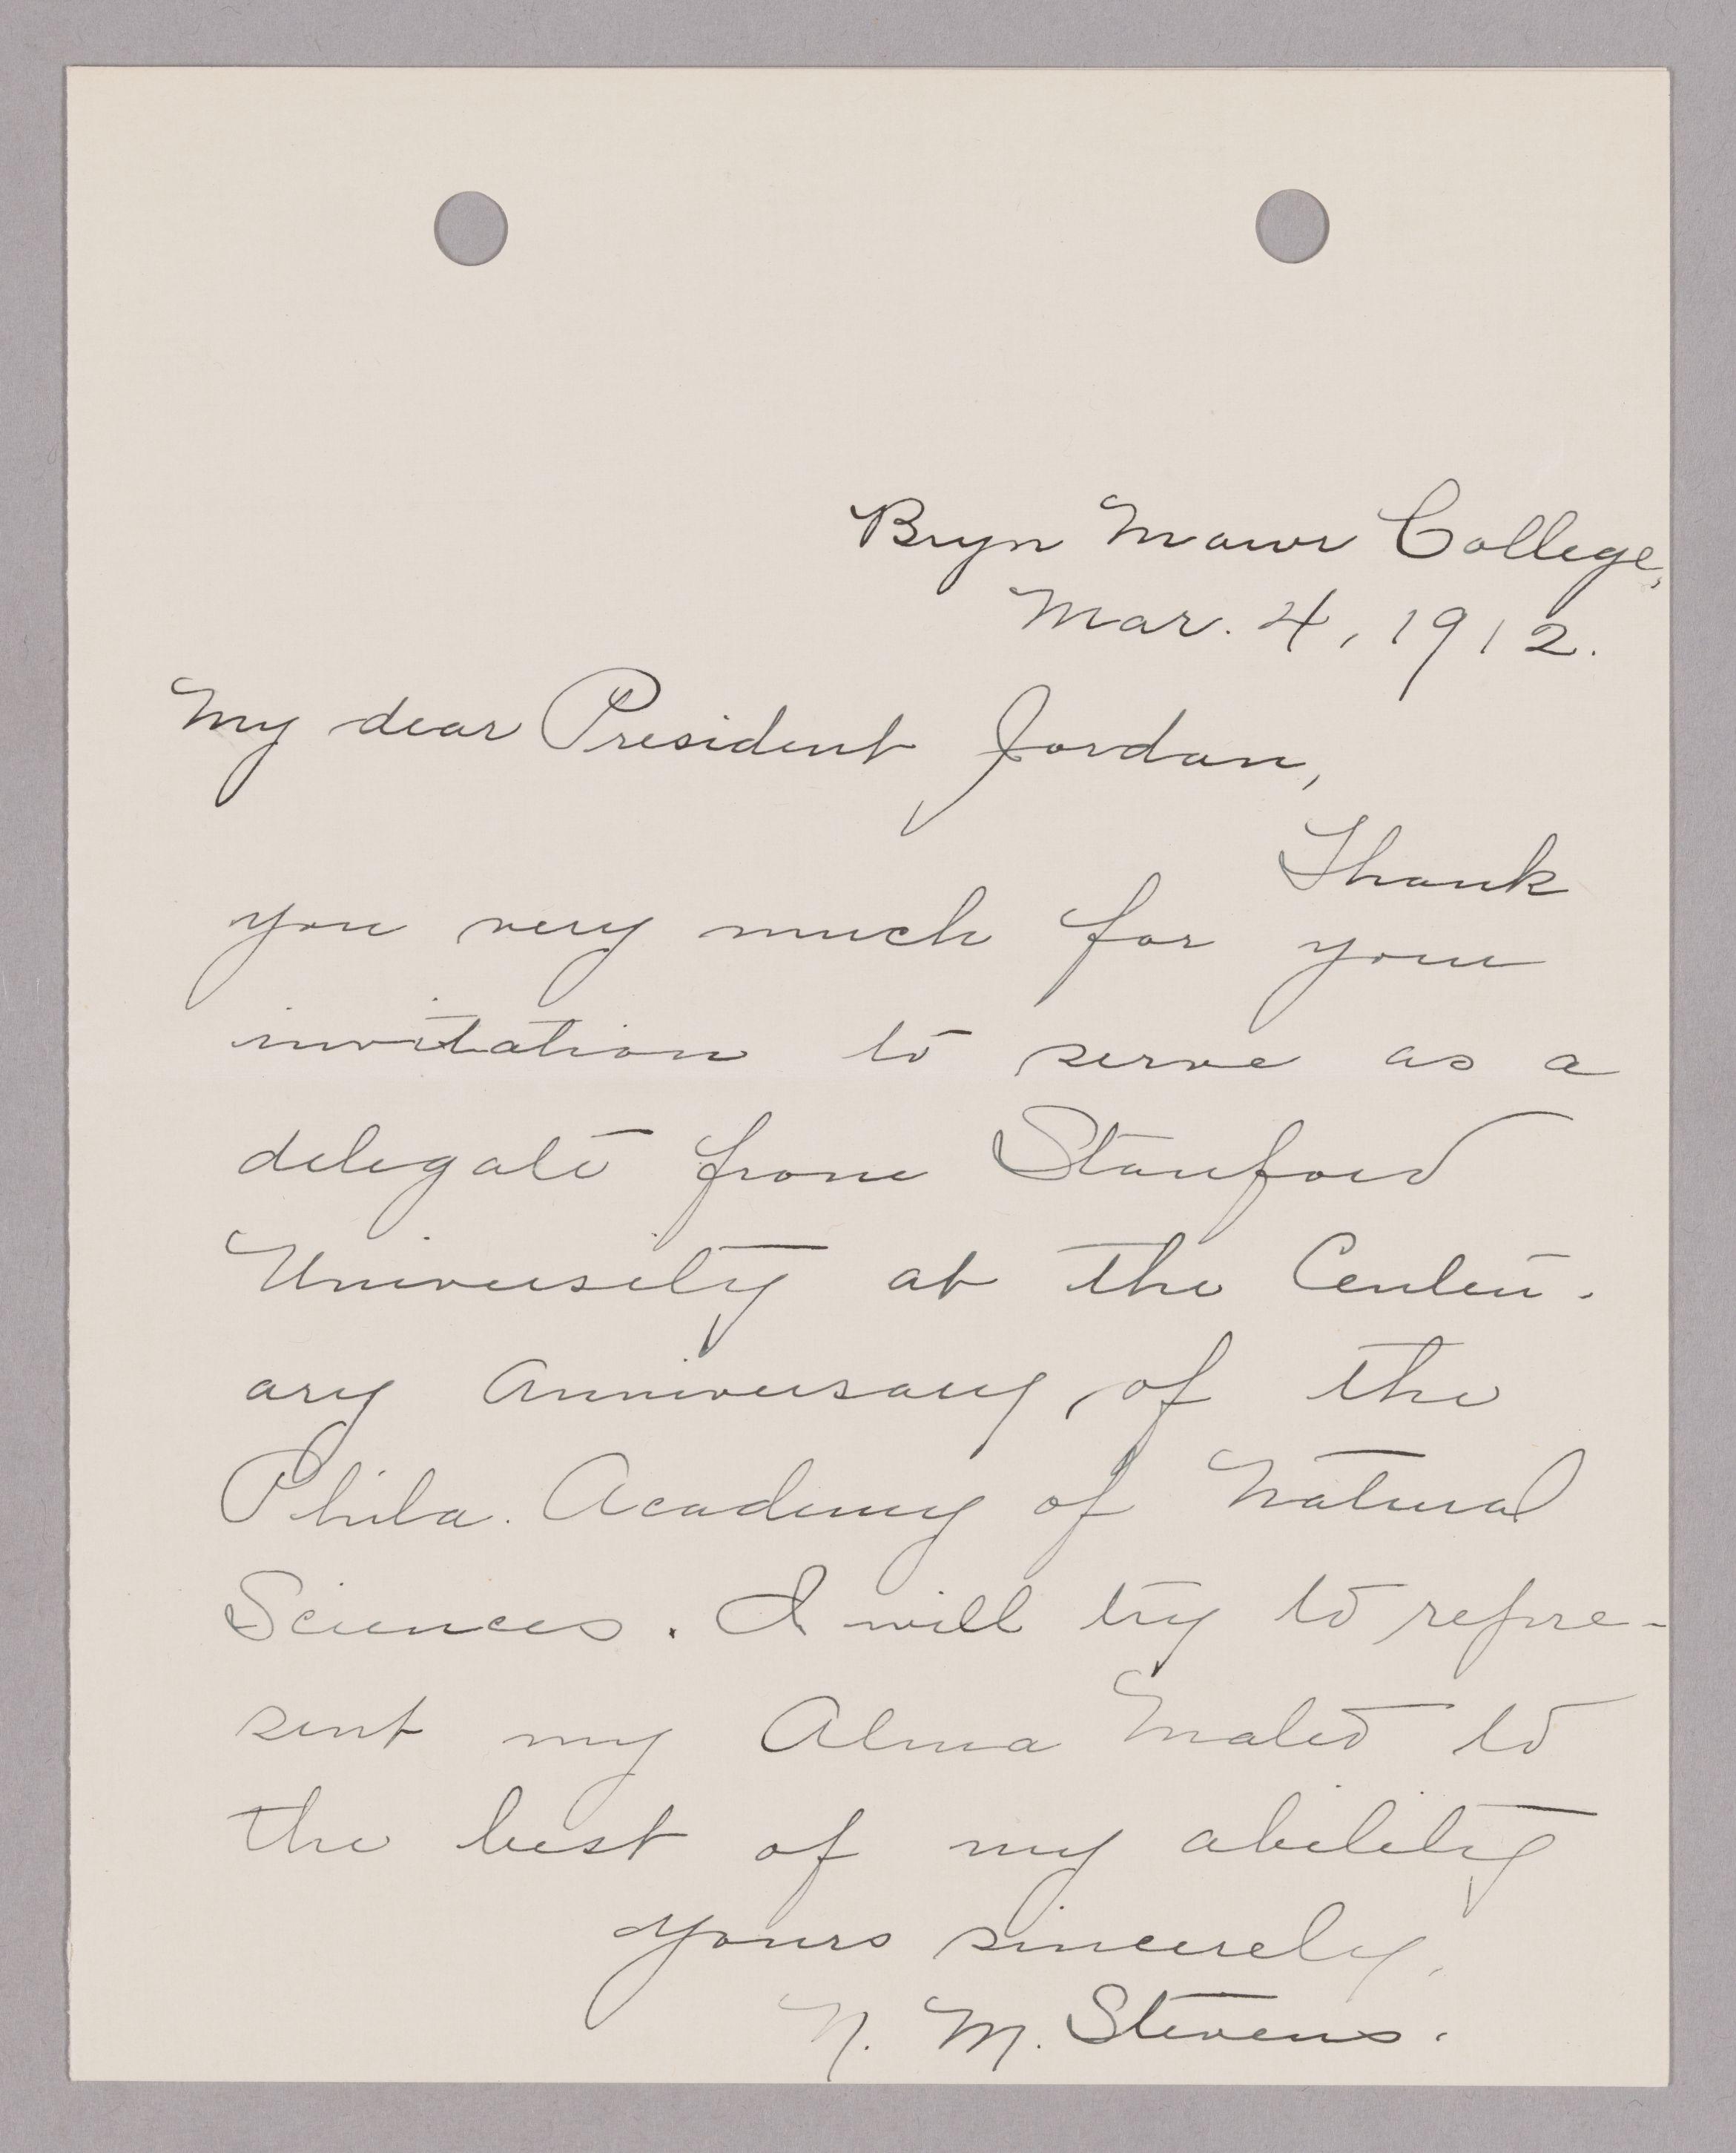 Bryn Mawr College,
Mar. 4, 1912.
My dear President Jordan,
Thank
you very much for your
invitation to serve as a
delegate from Stanford
University at the Centen-
ary Anniversary of the
Phila. Academy of Natural
Sciences. I will try to repre-
sent my Alma Mater to
the best of my ability
Yours sincerely,
N. M. Stevens.